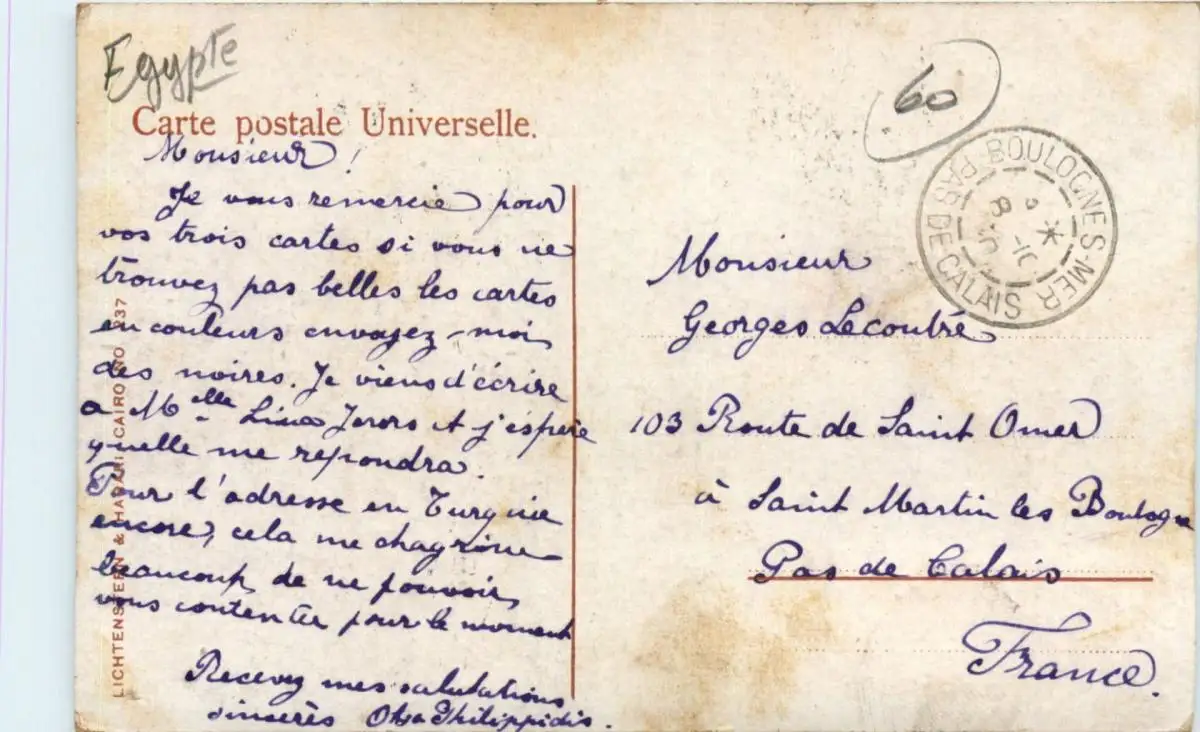 Egypte
60
Carte postale Universelle.
Monsieur !
Je vous remercie pour
vos trois cartes si vous ne
trouvez pas belles les cartes
en couleurs envoyez-moi
des noires. Je viens d'écrire
a Melle Lina et j'espère
qu'elle me repondra.
Pour l'adresse en Turquie
encore, cela me chagrine
beaucoup de ne pouvoir
vous contenter pour le moment
Recevez mes salutations
sincerès Philippidis.
LICHTENSTERN & HARARI, CAIRO NO 237
BOULOGNE-S-MER
PAS DE CALAIS
Monsieur
Georges Lecoutre
103 Route de Saint Omer
à Saint Martin les Boulogne
Pas de Calais
France.